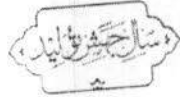 سال جهش تولید